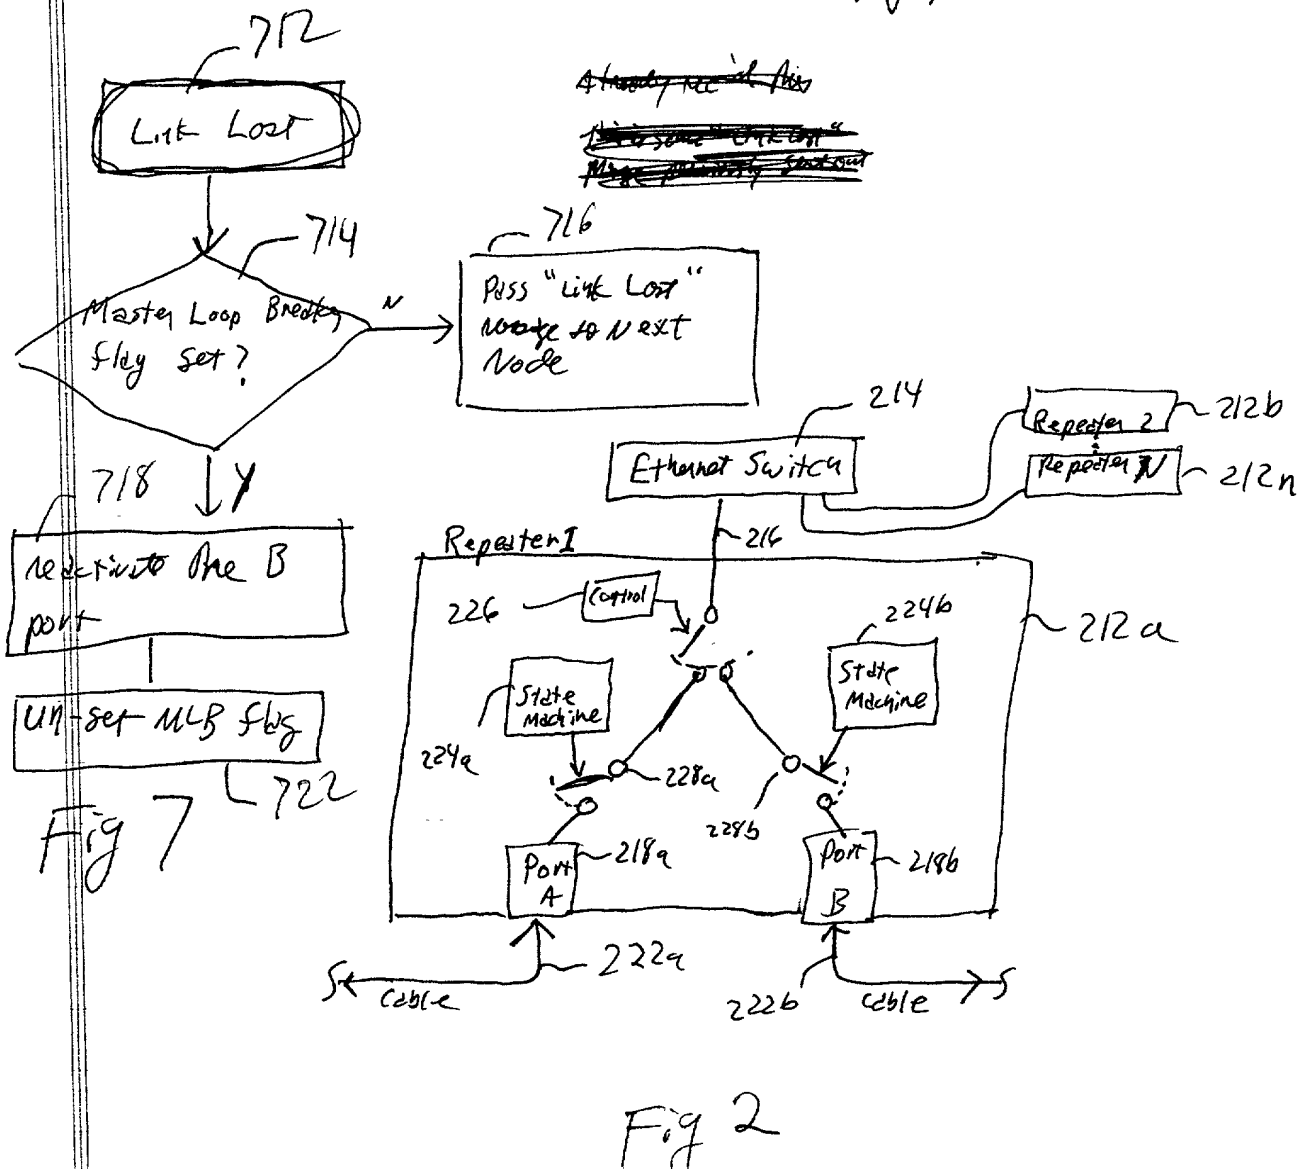 712
Link Lost
714
Master Loop Breaker
flag set?
N
716
Pass "Link Lost"
Message to Next
Node
718
Y
reactivate the B
port
un-set MLB flag
722
Fig 7
214
Ethernet Switch
Repeater 2
212b
Repeater N
212n
216
Repeater 1
226
Control
224b
212a
State
Machine
State
Machine
224a
228a
228b
Port
A
218a
Port
B
218b
222a
cable
222b
cable
Fig 2